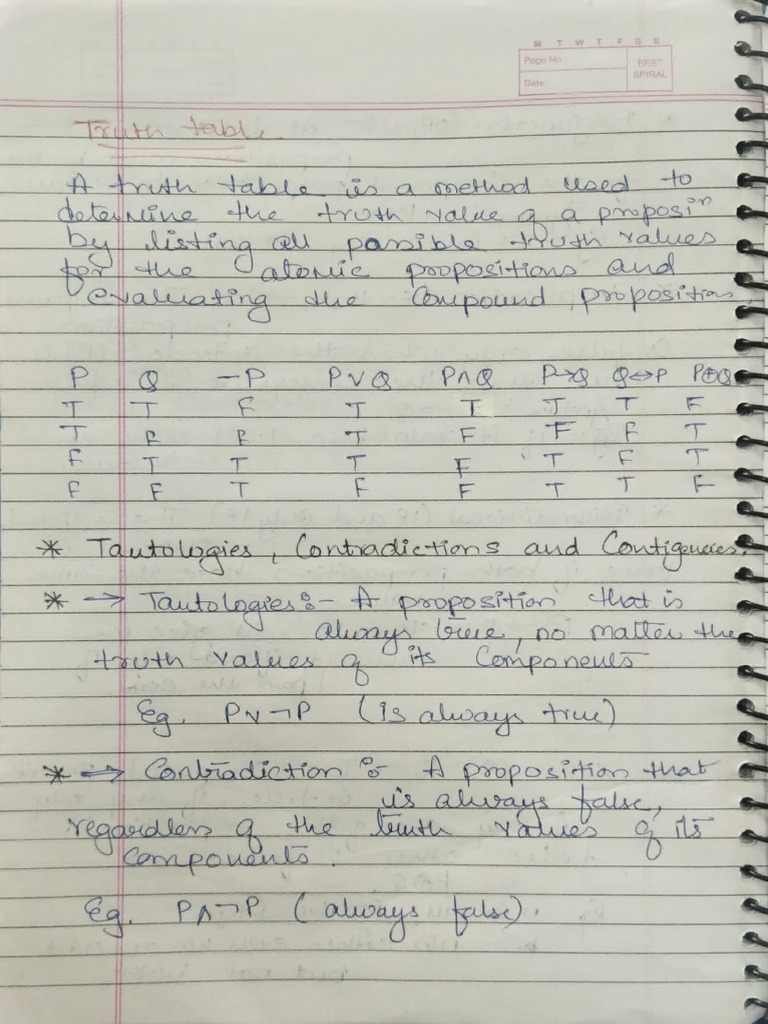 M T W T F S S
Page No.:
BEST
SPIRAL
Date:
Truth table
A truth table is a method used to
determine the truth value of a proposiⁿ
by listing all possible truth values
for the atomic propositions and
evaluating the compound proposition
P Q ¬P P∨Q P∧Q P→Q Q↔P P⊕Q
T T F T T T T F
T F F T F F F T
F T T T F T F T
F F T F F T T F
* Tautologies, Contradictions and Contigencies.
* → Tautologies :- A proposition that is
always true, no matter the
truth values of its components
Eg. P∨¬P (is always true)
* → Contradiction :- A proposition that
is always false,
regardless of the truth values of its
components.
Eg. P∧¬P (always false).